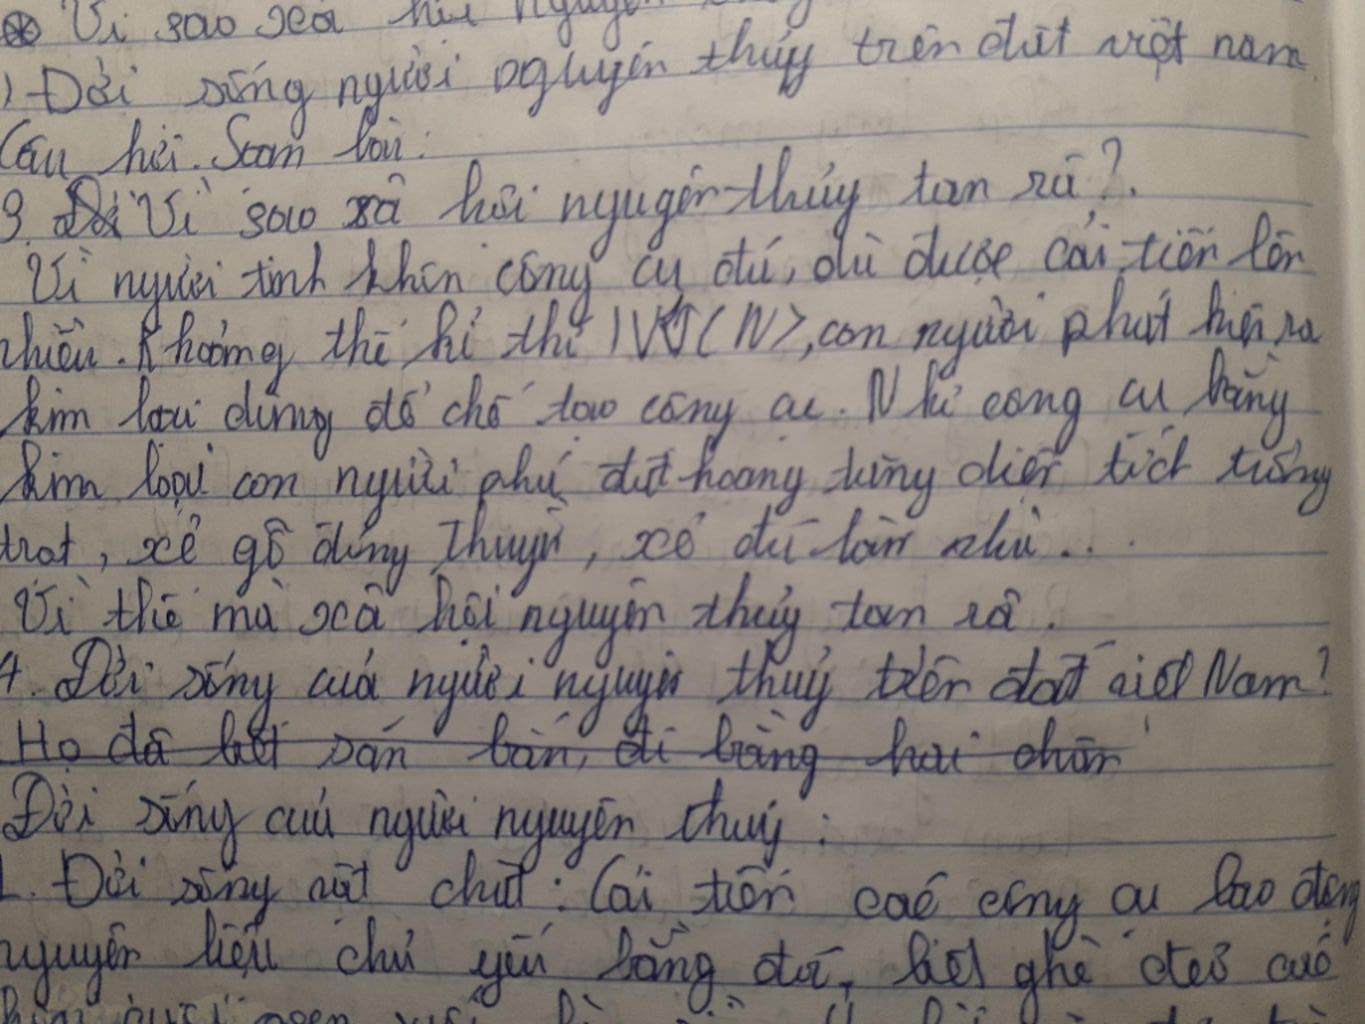 Vì sao xã hội nguyên
) Đời sống người nguyên thủy trên đất việt nam.
Câu hỏi. Soạn bài:
3. Vì sao xã hội nguyên thủy tan rã?.
Vì người tinh khôn công cụ đá, dù được cải tiến lên
nhiều. Khoảng thế kỉ thứ IV (N), con người phát hiện ra
kim loại dùng để chế tạo công cụ. Nhờ công cụ bằng
kim loại con người phá đất hoang tăng diện tích trồng
trọt, xẻ gỗ đóng thuyền, xẻ đá làm nhà...
Vì thế mà xã hội nguyên thủy tan rã.
4. Đời sống của người nguyên thuỷ trên đất việt Nam?
Họ đã biết săn bắn, đi bằng hai chân
Đời sống của người nguyên thuỷ:
1. Đời sống vật chất: Cải tiến các công cụ lao động
nguyên liệu chủ yếu bằng đá, biết ghè đẽo